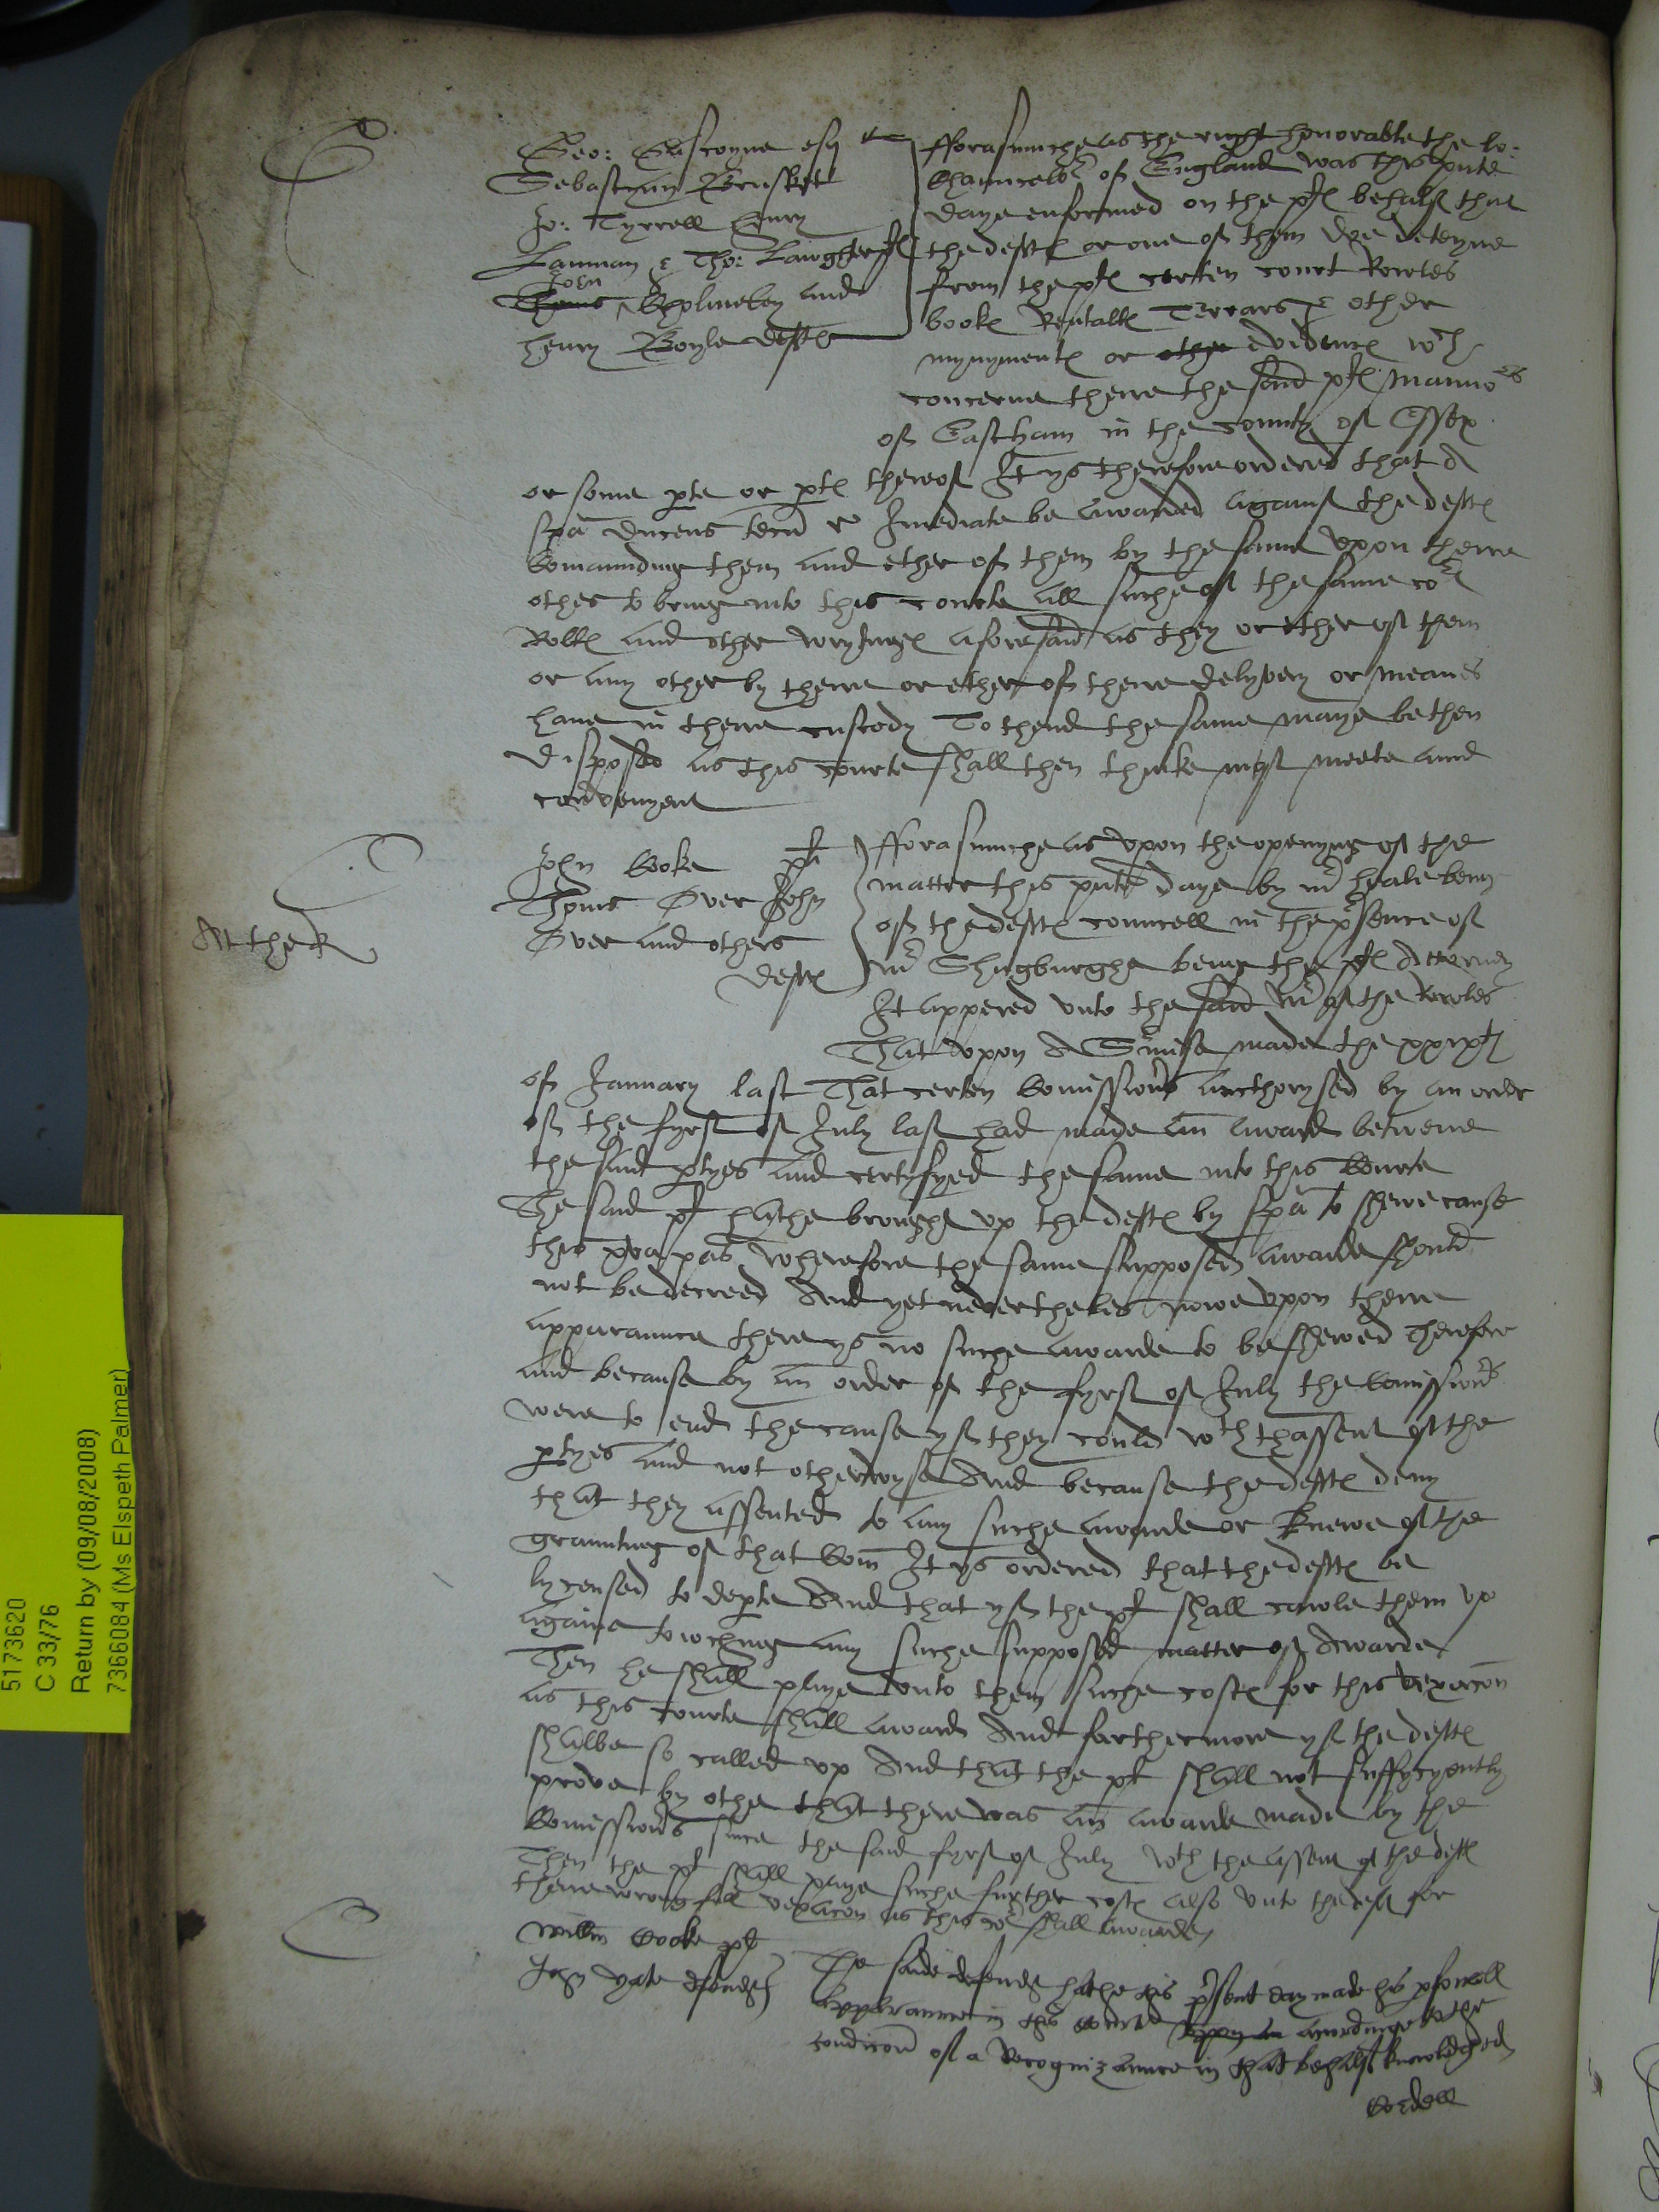 Geo: Gascoyne esq
Sebastyan Bruskett
Jo: Tyrrell Henry
Lamman & Tho: Lawghter plˢ
John
Thomas Cholmeley and
henry Boyle defˢ
fforasmuche as the right honorable the lo:
Chauncelor of England was this pnte
daye enformed on the plˢ behalf that
the deftˢ or one of them doe deteyne
from the plˢ certen court Rowles
bookˢ Rentallˢ Terrars & other
mynymentˢ or other evidencˢ wch
concerne theire the said plˢ mannors
of Eastham in the county of Essex
or some pte or ptˢ therof It ys therefore ordered that A
spa ducens tecũ rᵉ Imediate be awarded against the deftˢ
Comaunding them and ether of them by the same upon theire
othes to bring into this courte all suche of the same cort
Rollˢ and other wrytingˢ aforesaid as they or ether of them
or any other by theire or ether of theire delyvery or meanes
have in theire custody To thend the same maye be then
disposed as this courte shall then thinke most meete and
convenyent
John Cooke plt
Thoms Over John
Over and others
deftˢ
fforasmuche as upon the openyng of the
matter this pnte daye by mr heale being
of the deftˢ councell in the psence of
mr Shugburghe being the plˢ Attorney
It appered unto the said Mr of the Rowles
That upon A Surmise made the xxixth
At the R
of January last That certen Comissionrs aucthorysed by an order
of the fyrst of July last had made an award betwene
the said ptyes and certyfyed the same into this Courte
The said plt hathe brought up the deftˢ by spa to shewe cause
this xva pas wherefore the same supposed awarde should
not be decreed And yet neverthelesse nowe upon theire
apparaunce there ys no suche awarde to be shewed Therefore
and because by an order of the fyrst of July the Comissionrs
were to end the cause yf they could wth thassent of the
ptyes and not otherwyse And because the deftˢ deny
that they assented to any suche awarde or knewe of the
graunting of that Com It ys ordered that the deftˢ be
lycensed to depte And that yf the plt shall cawle them up
againe towching any suche supposed matter of Awarde
Then he shall paye unto them suche costˢ for this vexacon
as this courte shall award And furthermore yf the deftˢ
shalbe so called up And that the plt shall not suffycyently
prove by othe that there was an awarde made by the
Comissionrs since the said fyrst of July wth the assent of the deftˢ
Then the plt shall paye suche further costˢ also unto the deft for
theire wrongfull vexacon as this cort shall awarde
Willm Cooke plt
John yate defendt
The saide defendt hathe this present day made his psonall
apparaunce in this courte uppon an accordinge to the
condicon of a Recognizaunce in that behalf knowledged
Cordell
5173620
C 33/76
Return by (09/08/2008)
7366084 (Ms Elspeth Palmer)